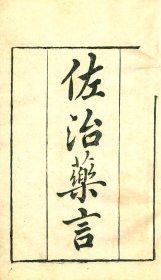 佐治藥言